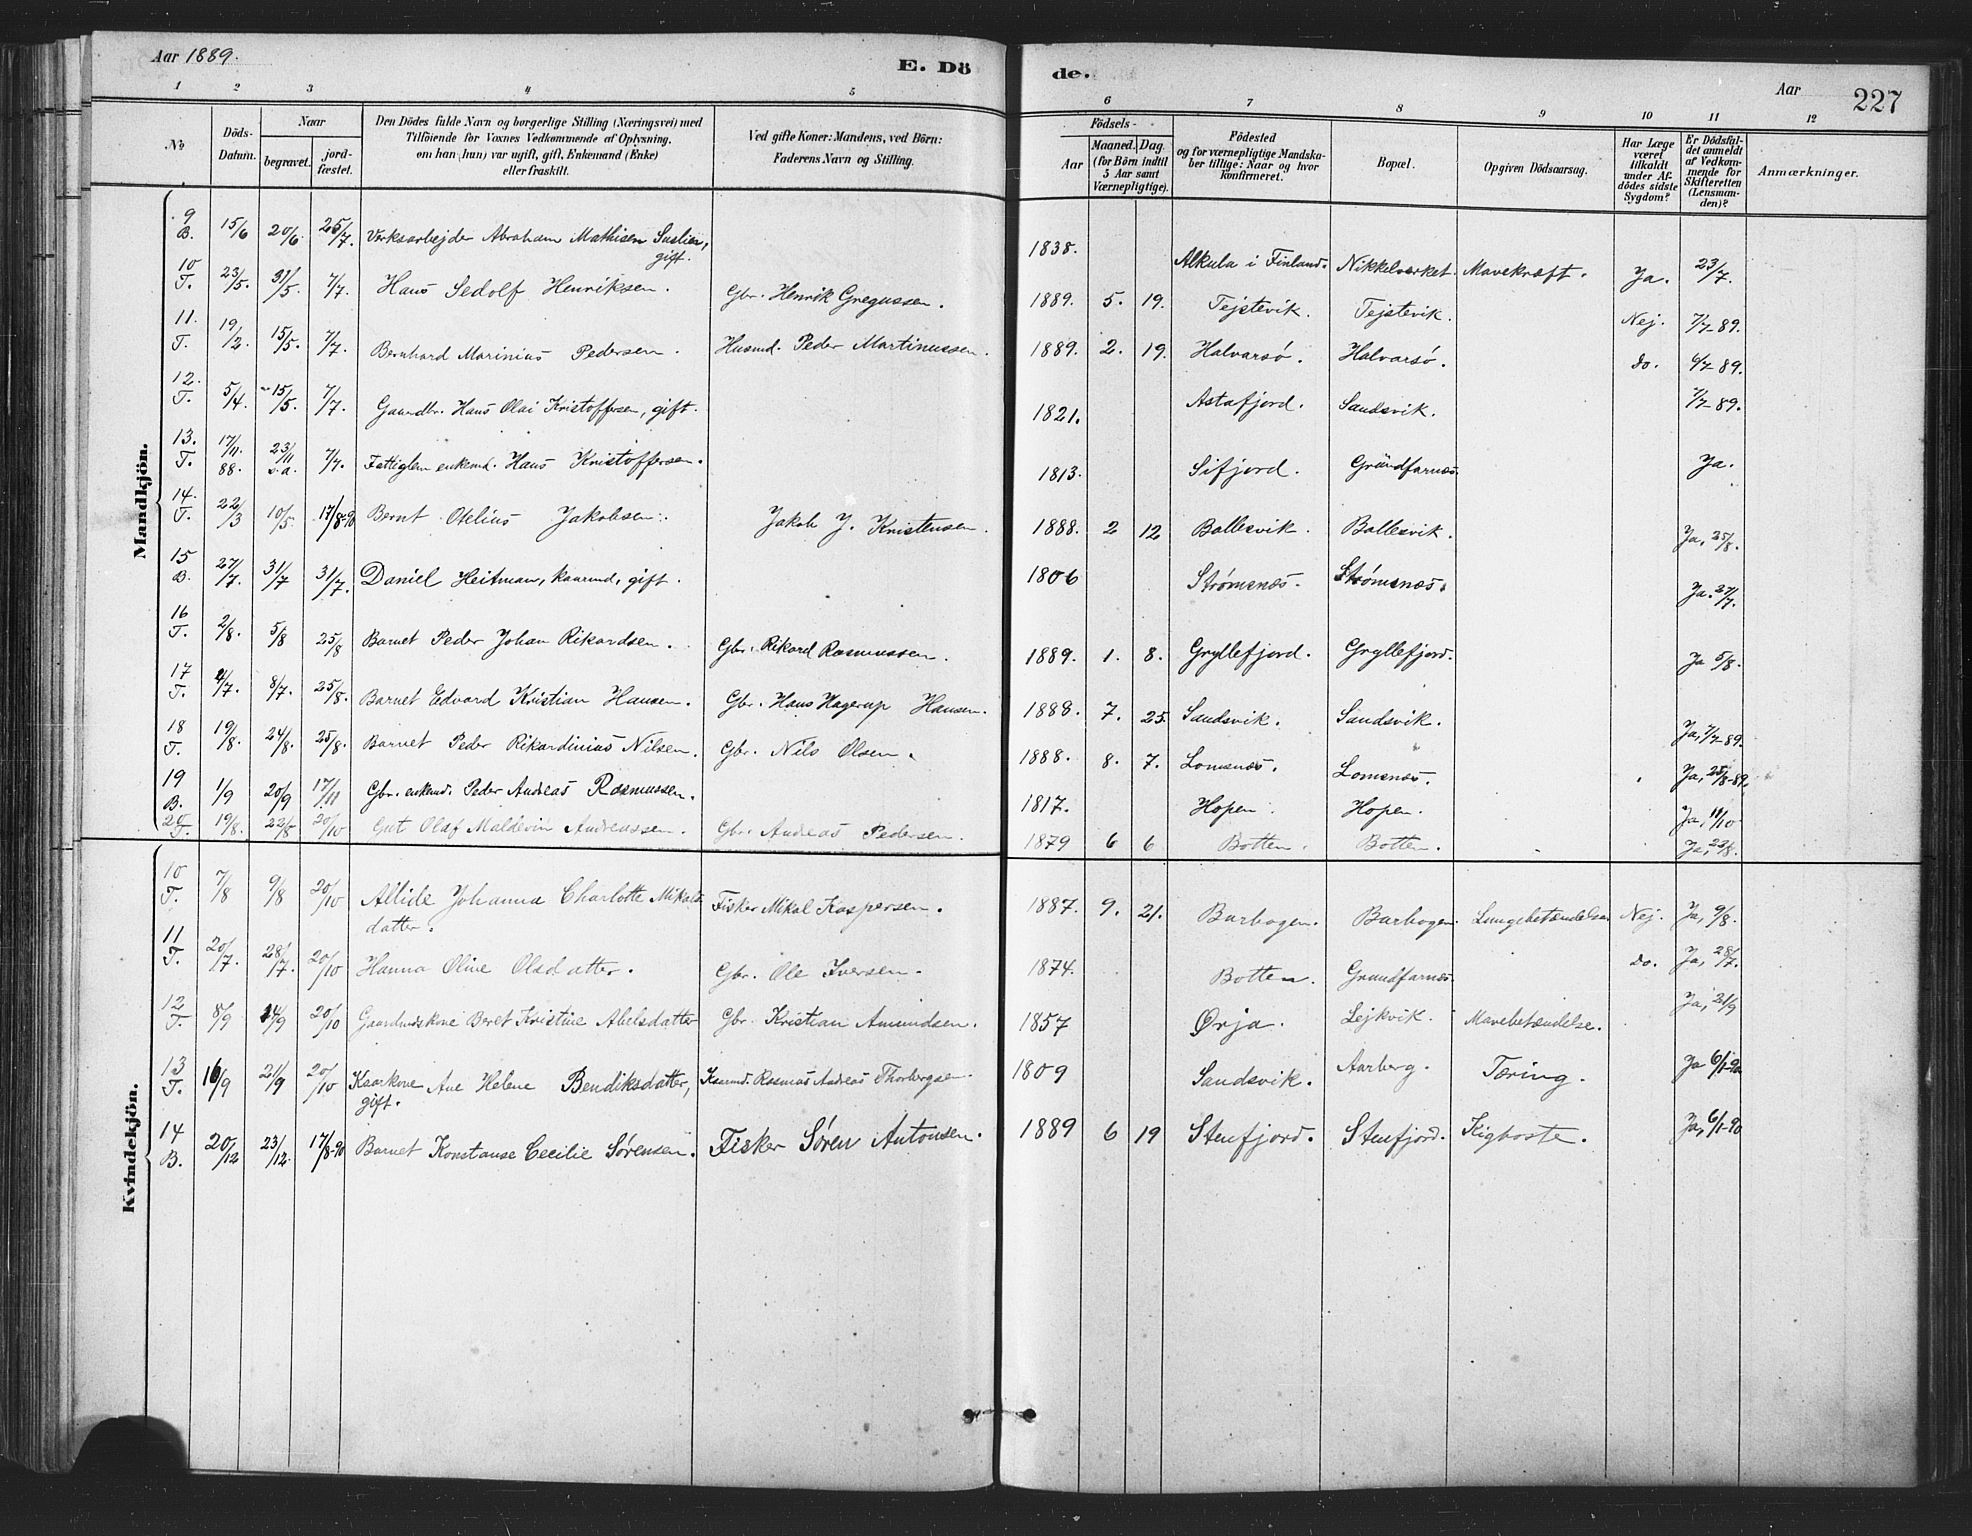 Aar 1889.
E. Dö de.
Aar
227
1 2 3 4 5 6 7 8 9 10 11 12
No
Döds-Datum.
Naar
begravet.
jord-fæstet.
Den Dödes fulde Navn og borgerlige Stilling (Næringsvei) med
Tilföiende for Voxnes Vedkommende af Oplysning,
om han (hun) var ugift, gift, Enkemand (Enke)
eller fraskilt.
Ved gifte Koner: Mandens, ved Börn:
Faderens Navn og Stilling.
Födsels-
Aar
Maaned. Dag.
(for Börn indtil
5 Aar samt
Værnepligtige).
Födested
og for værnepligtige Mandska-
ber tillige: Naar og hvor
konfirmeret.
Bopæl.
Opgiven Dödsaarsag.
Har Læge
været
tilkaldt
under Af-
dödes sidste
Sygdom?
Er Dödsfal-
det anmeldt
af Vedkom-
mende for
Skifteretten
(Lensman-
den)?
Anmærkninger.
Mandkjön.
9 B. 15/6 20/6 25/7. Verksarbejder Abraham Mathisen gift. 1838. Alkula i Finland. Nikkelverket. Mavekræft. Ja. 23/7.
10 T. 23/5. 31/5. 7/7. Hans Sedolf Henriksen. Gbr. Henrik Gregussen. 1889. 5. 19. Tejstevik. Tejstevik. Nej. 7/7-89.
11. T. 19/2. 15/5. 7/7. Bernhard Marinius Pedersen. Husmd. Peder Martinussen. 1889. 2. 19. Halvarsö. Halvarsö. do. 6/7-89.
12. T. 5/4. 15/5. 7/7. Gaardbr. Hans Olai Kristoffersen, gift. 1821. Astafjord. Sandsvik. 7/7-89.
13. T. 17/11 88. 23/11 s.a. 7/7. Fattiglem enkemd. Hans Kristoffersen. 1813. Sifjord. Grundfarnæs. Ja.
14. T. 22/3 10/5. 17/8-90 Bernt Otelius Jakobsen. Jakob J. Kristensen. 1888. 2 12 Ballesvik. Ballesvik. Ja, 25/8.
15 B. 27/7. 31/7 31/7. Daniel Heitman, kaarmd, gift. 1806 Strømsnæs. Strømsnæs. Ja. 27/7.
16 T. 2/8. 5/8 25/8 Barnet Peder Johan Rikardsen. Gbr. Rikard Rasmussen. 1889. 1. 8. Gryllefjord. Gryllefjord. Ja 5/8.
17 T. 4/7. 8/7. 25/8. Barnet Edvard Kristian Hansen. Gbr. Hans Hagerup Hansen. 1888. 7. 25. Sandsvik. Sandsvik. Ja, 7/7-89.
18 T. 19/8. 24/8. 25/8. Barnet Peder Rikardinius Nilsen. Gbr. Nils Olsen. 1888. 8. 7. Lomsnæs. Lomsnæs. Ja, 25/8-89.
19 B. 1/9 20/9 17/11 Gbr. enkemd. Peder Andreas Rasmussen. 1817. Hopen. Hopen. Ja, 11/10
20 T. 19/8. 22/8 20/10 Gut Olaf Maldevin Andreassen. Gbr. Andreas Pedersen. 1879 6 6 Botten. Botten. Ja, 23/8.
Kvindekjön.
10 T. 7/8 9/8 20/10 Alide Johanna Charlotte Mikals
datter. Fisker Mikal Kaspersen. 1887. 9. 21. Barbogen. Barbogen. Lungebetændelse. Nej. Ja, 9/8.
11 T. 20/7. 28/7. 20/10 Hanna Oline Olsdatter. Gbr. Ole Iversen. 1874. Botten. Grundfarnæs. do. Ja, 28/7.
12 T. 8/9 14/9 20/10 Gaardmdskone Beret Kristine Abelsdatter Gbr. Kristian Amundsen. 1857 Ørja. Lejkvik. Mavebetændelse. Ja, 21/9
13 T. 16/9 21/9 20/10 Kaarkone Ane Helene Bendiksdatter, gift. Kaarmd. Rasmus Andreas Thorbergsen. 1809 Sandsvik. Aarberg. Tæring. Ja 6/1-90
14 B. 20/12 23/12. 17/8-90 Barnet Konstanse Cecilie Sørensen. Fisker Søren Antonsen. 1889 6 19 Stenfjord. Stenfjord. Kighoste. Ja, 6/1-90